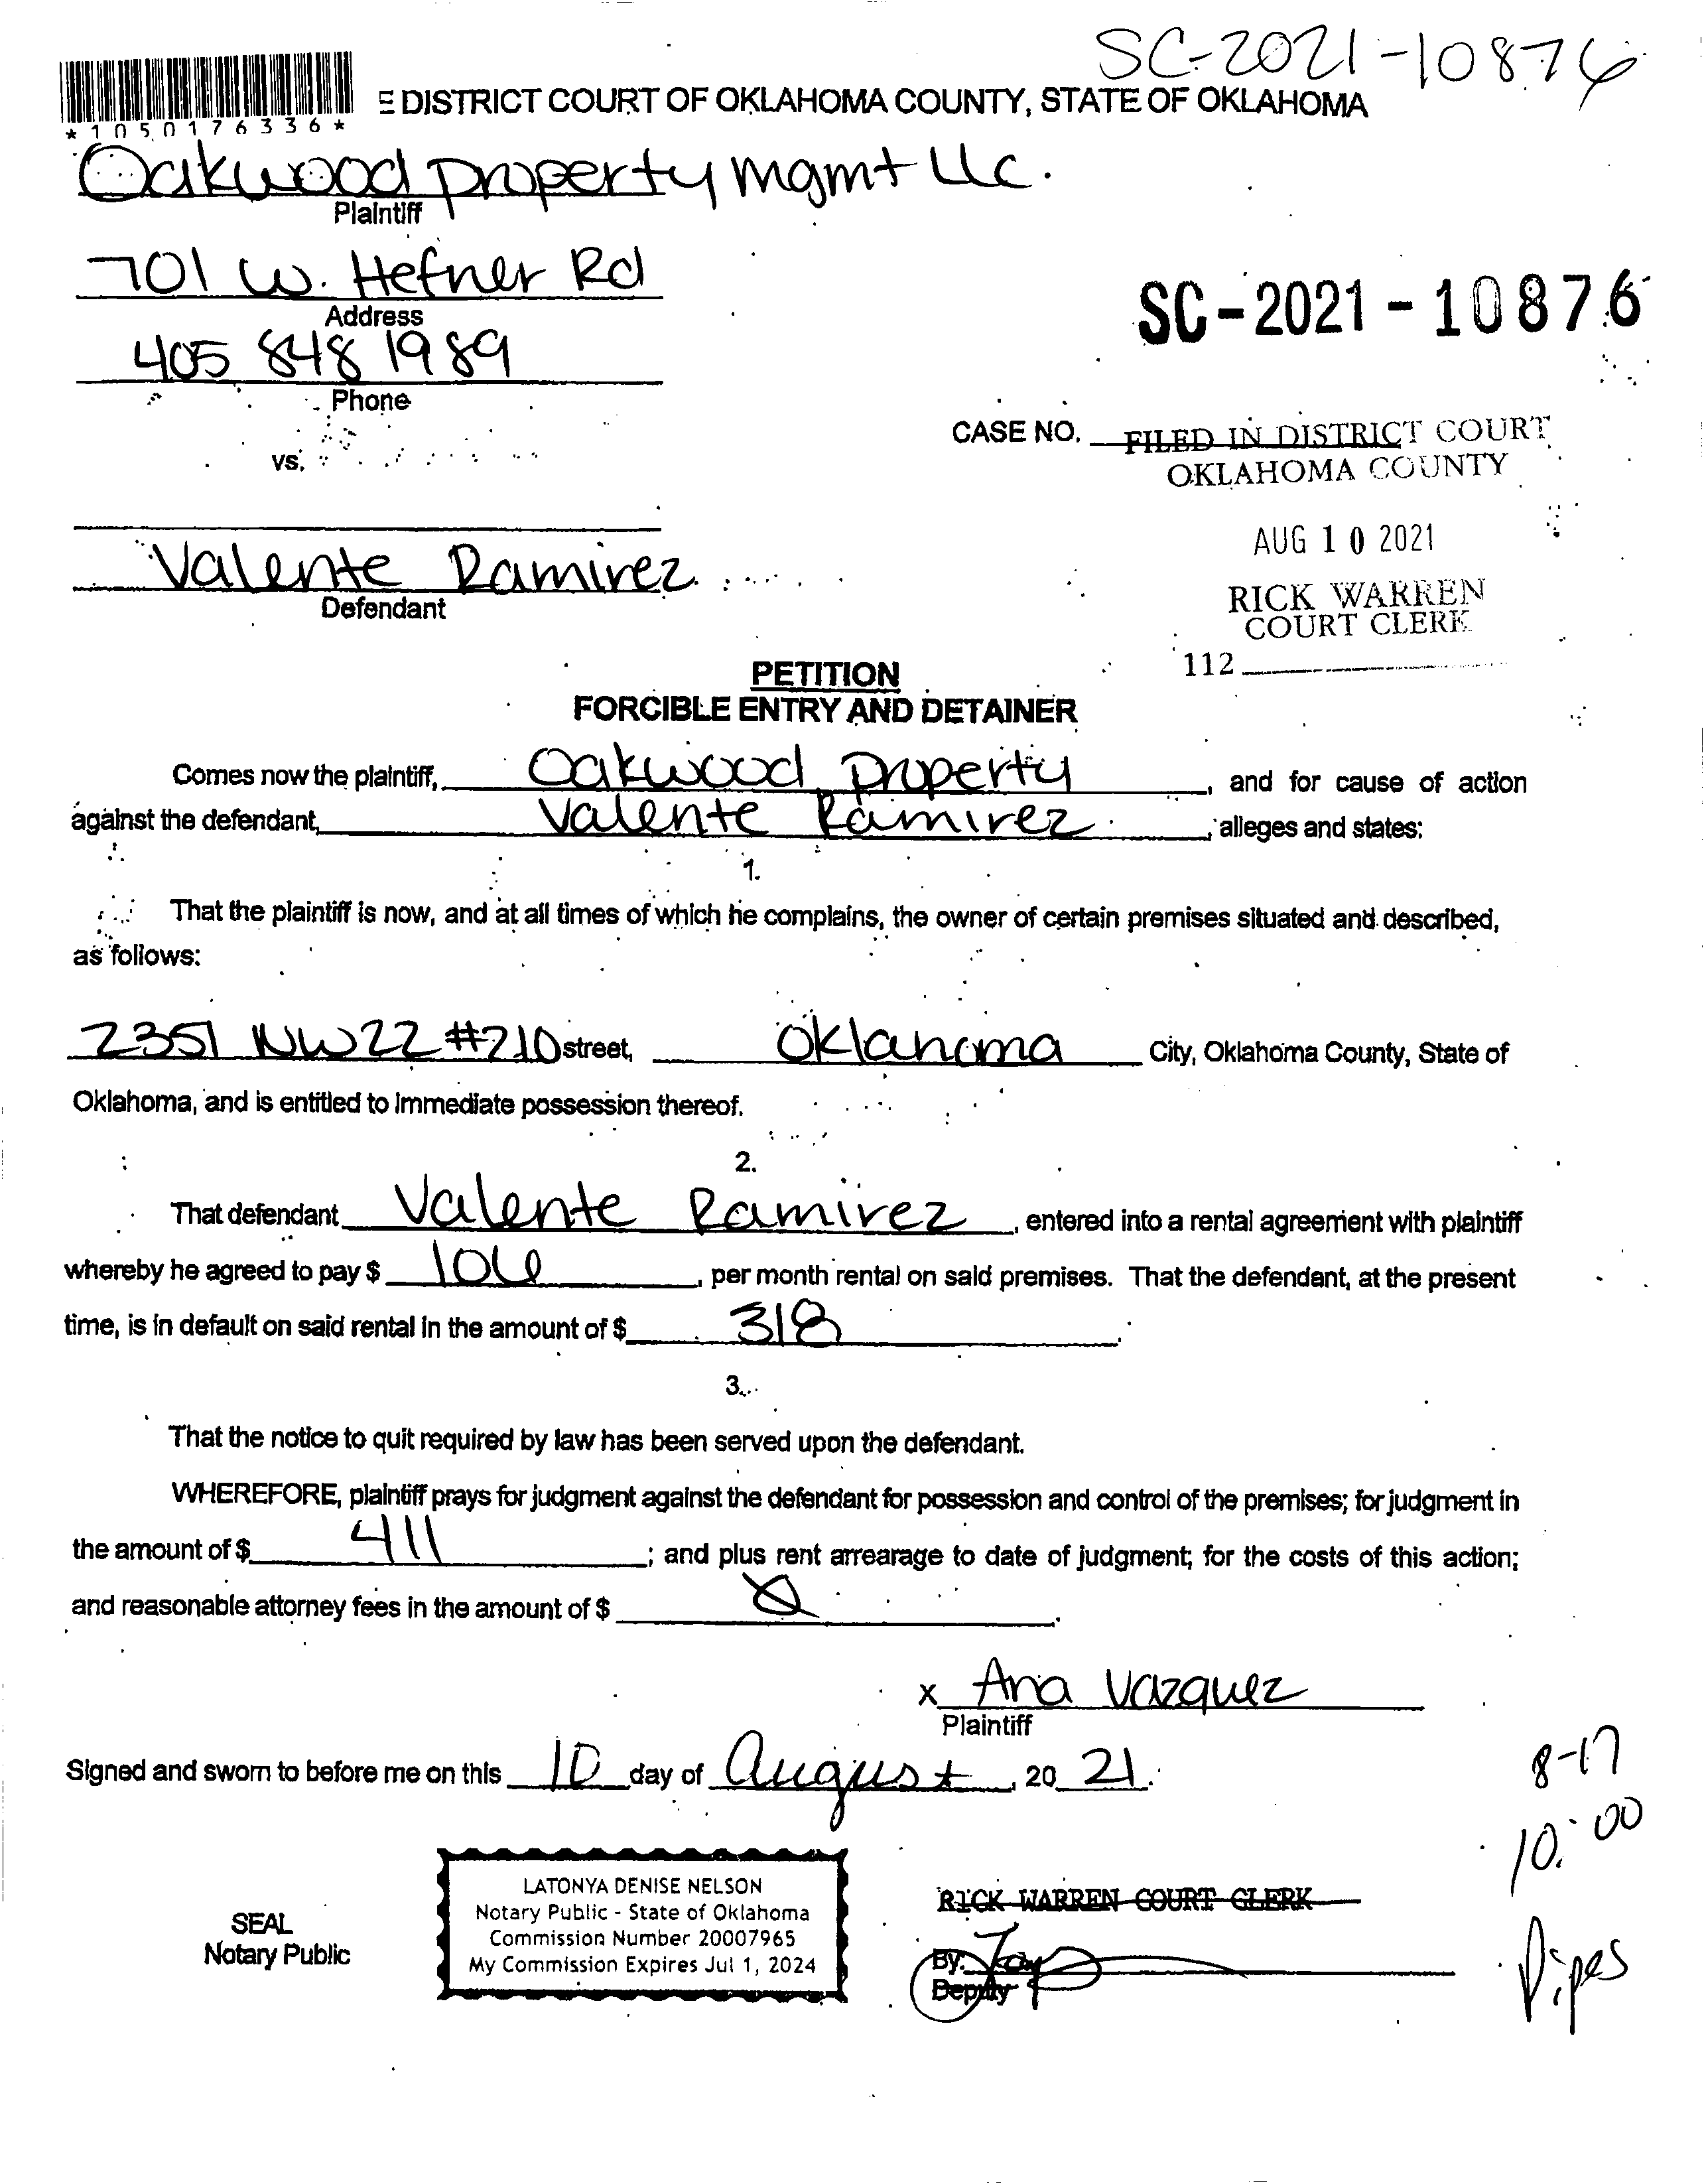 SC-2021-10876
*1050176336*
E DISTRICT COURT OF OKLAHOMA COUNTY, STATE OF OKLAHOMA
Oakwood property mgmt llc.
Plaintiff
701 W. Hefner Rd
Address
SC-2021-10876
405 848 1989
Phone
CASE NO. FILED IN DISTRICT COURT
OKLAHOMA COUNTY
vs.
AUG 10 2021
Valente Ramirez
Defendant
RICK WARREN
COURT CLERK
112
PETITION
FORCIBLE ENTRY AND DETAINER
Comes now the plaintiff, Oakwood property, and for cause of action
against the defendant, Valente Ramirez, alleges and states:
1.
That the plaintiff is now, and at all times of which he complains, the owner of certain premises situated and described,
as follows:
2351 NW 22 #210 street, Oklahoma City, Oklahoma County, State of
Oklahoma, and is entitled to immediate possession thereof.
2.
That defendant Valente Ramirez, entered into a rental agreement with plaintiff
whereby he agreed to pay $ 106, per month rental on said premises. That the defendant, at the present
time, is in default on said rental in the amount of $ 318.
3.
That the notice to quit required by law has been served upon the defendant.
WHEREFORE, plaintiff prays for judgment against the defendant for possession and control of the premises; for judgment in
the amount of $ 411; and plus rent arrearage to date of judgment; for the costs of this action;
and reasonable attorney fees in the amount of $ Ø.
x Ana Vazquez
Plaintiff
Signed and sworn to before me on this 10 day of August, 20 21.
8-17
10:00
Pipes
SEAL
Notary Public
LATONYA DENISE NELSON
Notary Public - State of Oklahoma
Commission Number 20007965
My Commission Expires Jul 1, 2024
RICK WARREN COURT CLERK
By:
Deputy